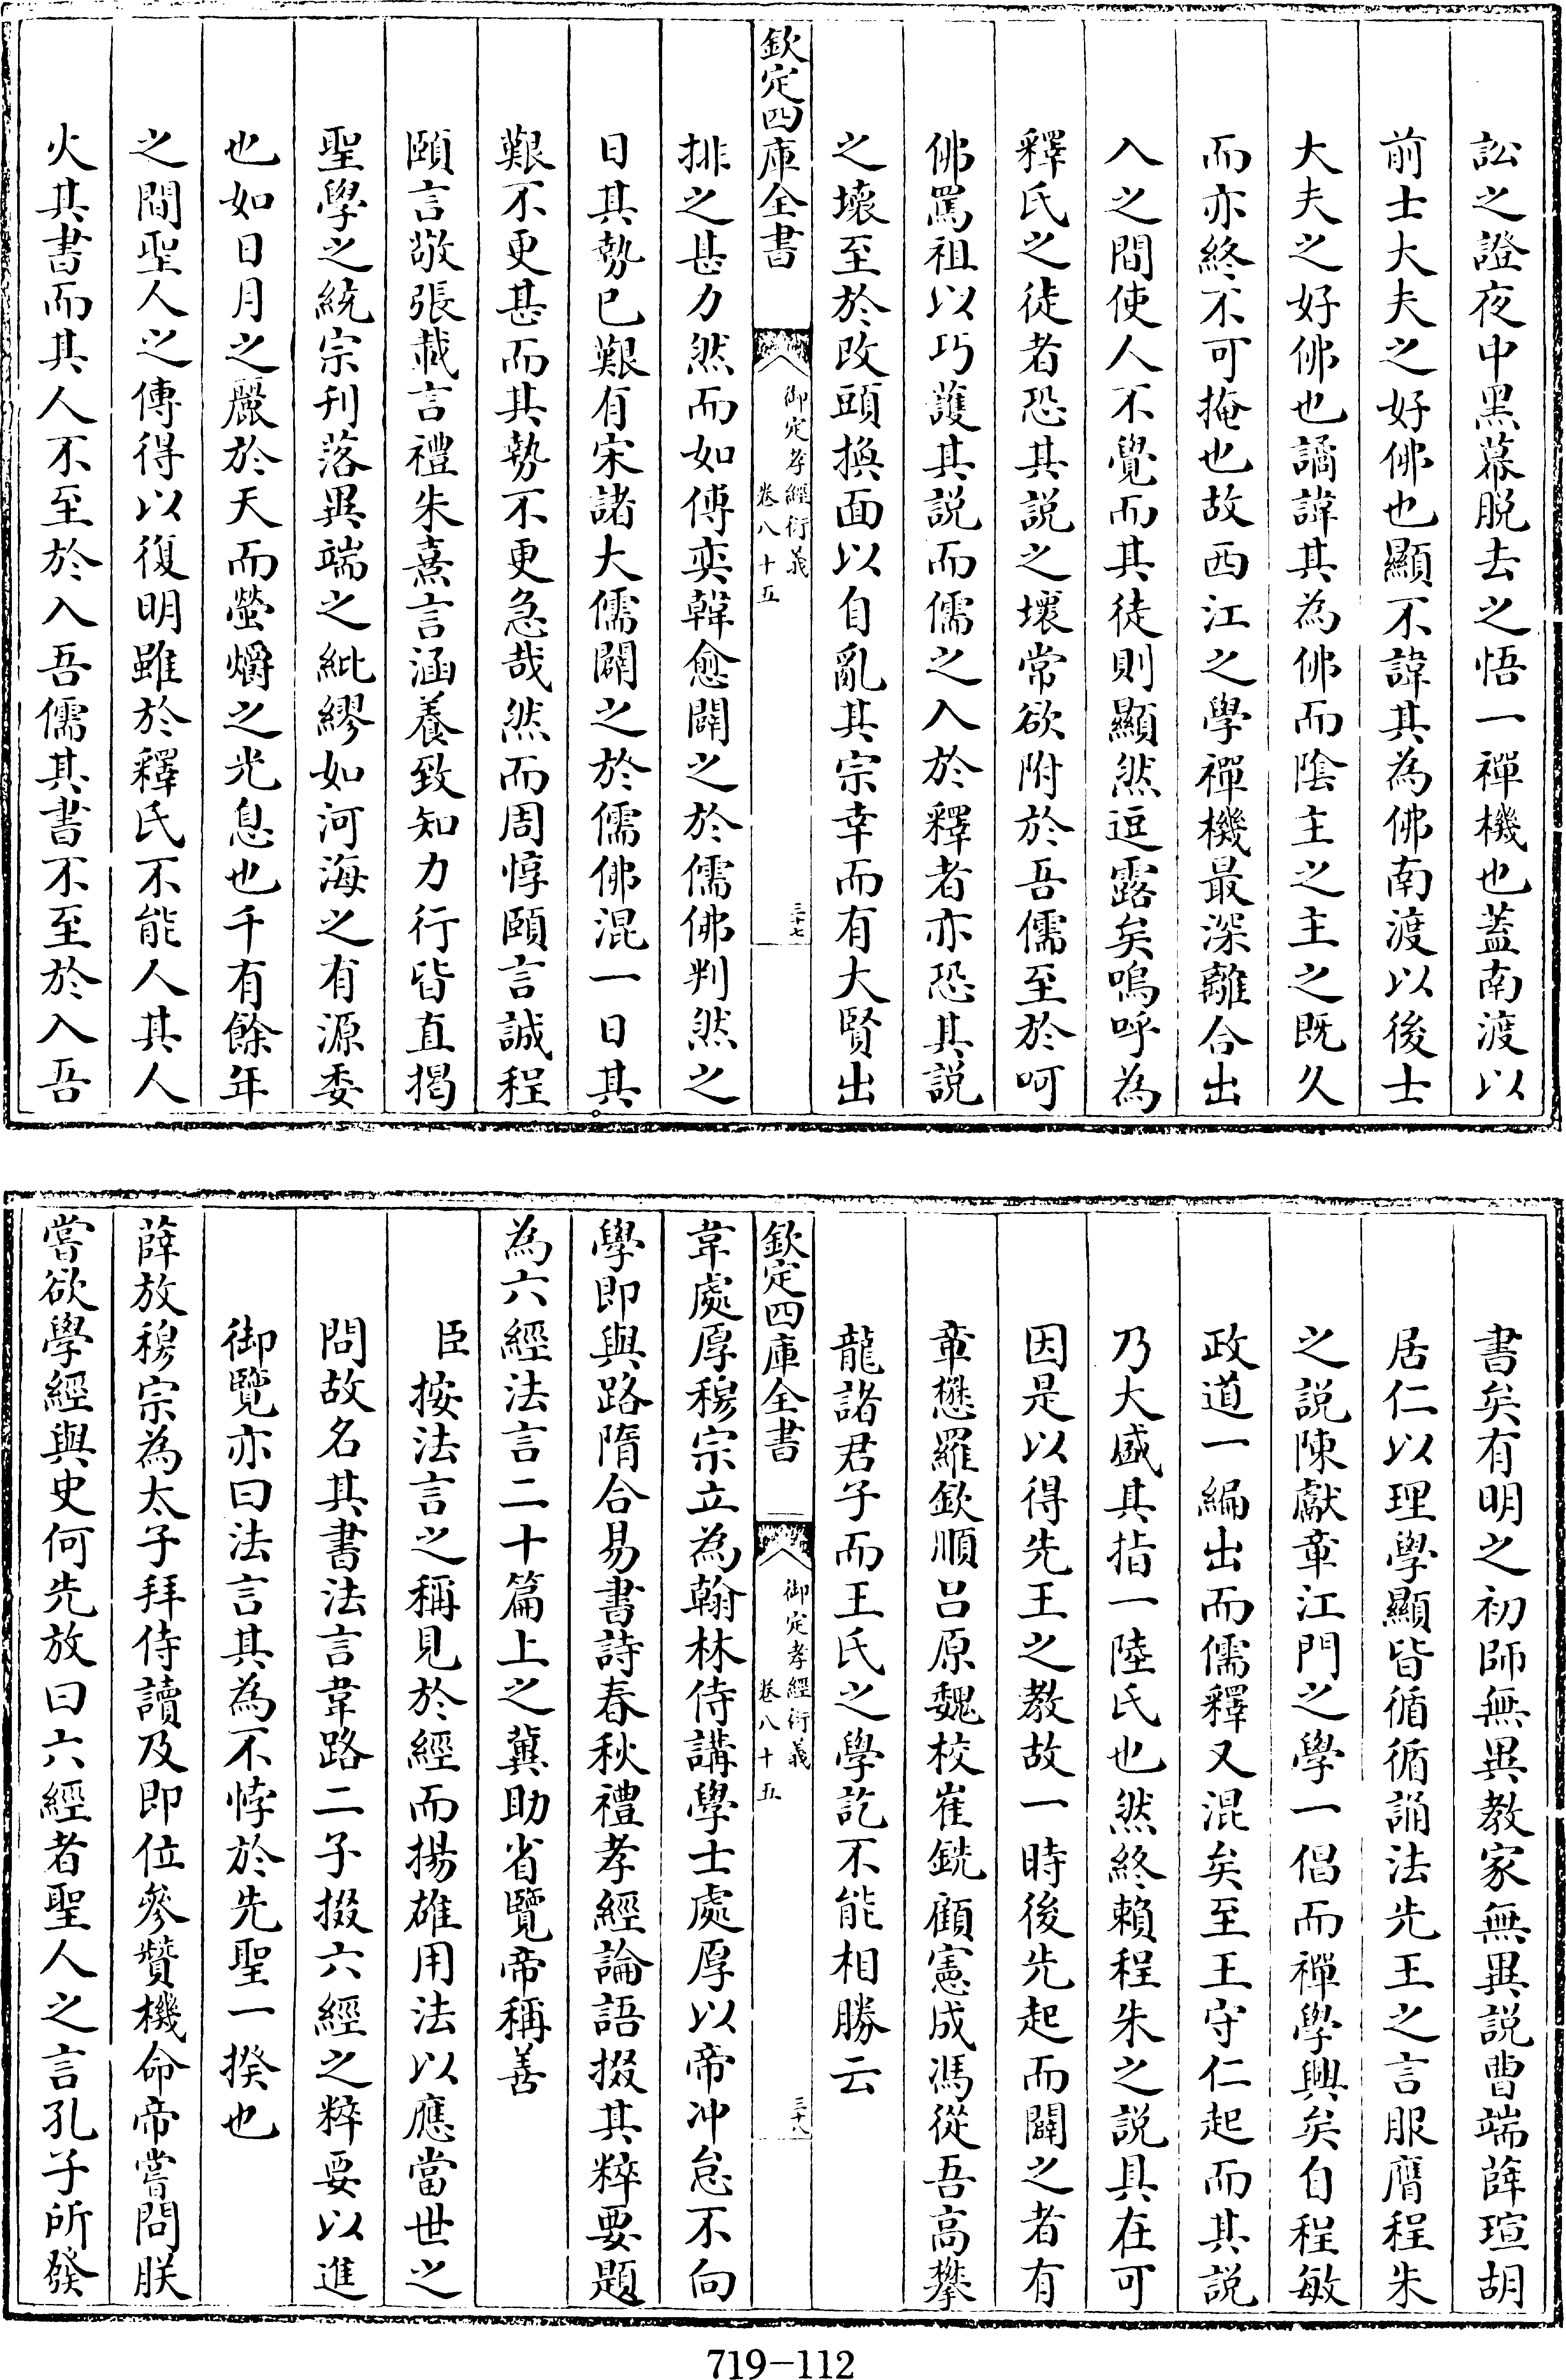 訟之證夜中黑幕脱去之悟一禪機也蓋南渡以
前士大夫之好佛也顯不諱其為佛南渡以後士
大夫之好佛也譎諱其為佛而陰主之主之既久
而亦終不可掩也故西江之學禪機最深離合出
入之間使人不覺而其徒則顯然逗露矣嗚呼為
釋氏之徒者恐其説之壞常欲附於吾儒至於呵
佛罵祖以巧護其説而儒之入於釋者亦恐其説
之壞至於改頭換面以自亂其宗幸而有大賢出
欽定四庫全書
御定孝經衍義
卷八十五
三十七
排之甚力然而如傅奕韓愈闢之於儒佛判然之
日其勢已艱有宋諸大儒闢之於儒佛混一日其
艱不更甚而其勢不更急哉然而周惇頤言誠程
頤言敬張載言禮朱熹言涵養致知力行皆直揭
聖學之統宗刋落異端之紕繆如河海之有源委
也如日月之麗於天而螢爝之光息也千有餘年
之間聖人之傳得以復明雖於釋氏不能人其人
火其書而其人不至於入吾儒其書不至於入吾
書矣有明之初師無異教家無異説曹端薛瑄胡
居仁以理學顯皆循循誦法先王之言服膺程朱
之説陳獻章江門之學一倡而禪學興矣自程敏
政道一編出而儒釋又混矣至王守仁起而其説
乃大盛其指一陸氏也然終賴程朱之説具在可
因是以得先王之教故一時後先起而闢之者有
章懋羅欽順呂原魏校崔銑顧憲成馮從吾高攀
龍諸君子而王氏之學訖不能相勝云
欽定四庫全書
御定孝經衍義
卷八十五
三十八
韋處厚穆宗立為翰林侍講學士處厚以帝冲怠不向
學即與路隋合易書詩春秋禮孝經論語掇其粹要題
為六經法言二十篇上之冀助省覽帝稱善
臣按法言之稱見於經而揚雄用法以應當世之
問故名其書法言韋路二子掇六經之粹要以進
御覽亦曰法言其為不悖於先聖一揆也
薛放穆宗為太子拜侍讀及即位參贊機命帝嘗問朕
嘗欲學經與史何先放曰六經者聖人之言孔子所發
719-112